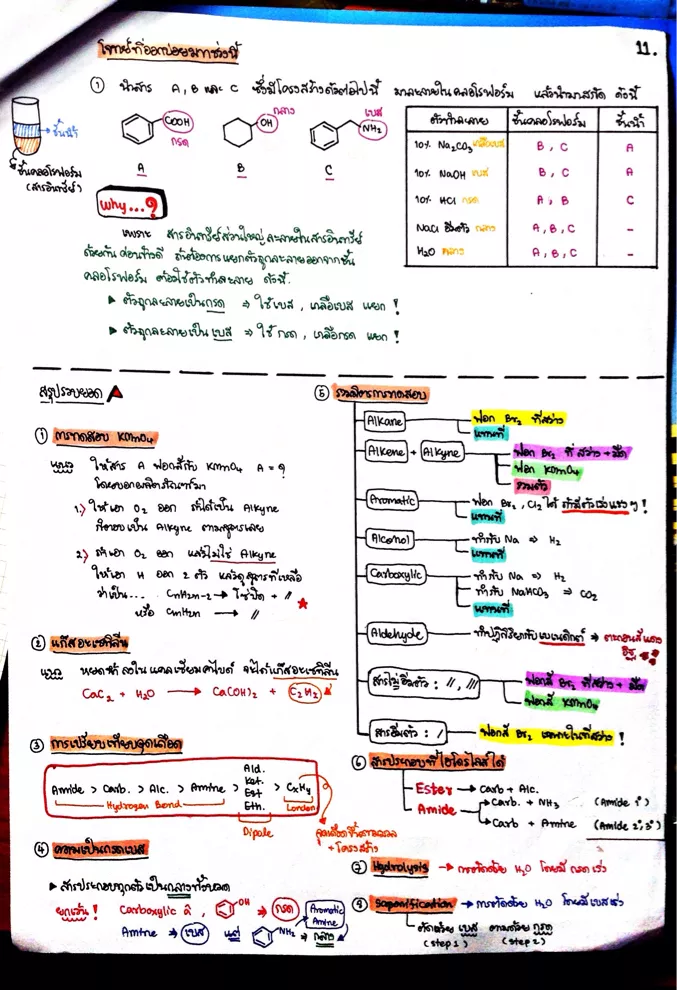 โจทย์ที่ออกบ่อยมากช่วงนี้
11.
① นำสาร A, B และ C ซึ่งมีโครงสร้างดังต่อไปนี้ มาละลายในคลอโรฟอร์ม แล้วนำมาสกัด ดังนี้
ชั้นน้ำ
ชั้นคลอโรฟอร์ม
(สารอินทรีย์)
COOH
กรด
A
กลาง
OH
B
เบส
NH₂
C
ตัวทำละลาย ชั้นคลอโรฟอร์ม ชั้นน้ำ
10% Na₂CO₃ เกลือเบส B, C A
10% NaOH เบส B, C A
10% HCl กรด A, B C
NaCl อิ่มตัว กลาง A, B, C -
H₂O กลาง A, B, C -
Why...?
เพราะ สารอินทรีย์ส่วนใหญ่ละลายในสารอินทรีย์
ด้วยกันค่อนข้างดี ถ้าต้องการแยกตัวถูกละลายออกจากชั้น
คลอโรฟอร์ม ต้องใช้ตัวทำละลาย ดังนี้.
▶ ตัวถูกละลายเป็นกรด ⇒ ใช้เบส, เกลือเบส แยก !
▶ ตัวถูกละลายเป็นเบส ⇒ ใช้กรด, เกลือกรด แยก !
สรุปรวบยอด
① การทดสอบ KMnO₄
แนว ให้สาร A ฟอกสีกับ KMnO₄ A = ?
โดยบอกผลิตภัณฑ์มา
1.) ให้เอา O₂ ออก ถ้าได้เป็น Alkyne
ก็ตอบเป็น Alkyne ตามสูตรเลย
2.) ถ้าเอา O₂ ออก แล้วไม่ใช่ Alkyne
ให้เอา H ออก 2 ตัว แล้วดูสูตรที่เหลือ
ว่าเป็น... CnH2n-2 → โซ่ปิด + //
หรือ CnH2n → //
② แก๊สอะเซทิลีน
แนว หยดน้ำลงในแคลเซียมคาร์ไบด์ จะได้แก๊สอะเซทิลีน
CaC₂ + H₂O → Ca(OH)₂ + C₂H₂
③ การเปรียบเทียบจุดเดือด
Amide > Carb. > Alc. > Amine > Ald. Ket. Est Eth. > CxHy
Hydrogen Bond
London
Dipole
จุดเดือดขึ้นตามมวล
+ โครงสร้าง
④ ความเป็นกรดเบส
▶ สารประกอบทุกตัวเป็นกลางทั้งหมด
ยกเว้น! Carboxylic a., OH ⇒ กรด
Amine ⇒ เบส แต่ NH₂ ⇒ กลาง
Aromatic
Amine
⑤ รวมมิตรการทดสอบ
Alkane ฟอก Br₂ ที่สว่าง
แทนที่
Alkene + Alkyne ฟอก Br₂ ที่สว่าง + มืด
ฟอก KMnO₄
รวมตัว
Aromatic ฟอก Br₂, Cl₂ ได้ ถ้ามีตัวเร่งแรงๆ !
แทนที่
Alcohol ทำกับ Na ⇒ H₂
แทนที่
Carboxylic ทำกับ Na ⇒ H₂
ทำกับ NaHCO₃ ⇒ CO₂
แทนที่
Aldehyde ทำปฏิกิริยากับเบเนดิกต์ → ตะกอนสีแดงอิฐ
สารไม่อิ่มตัว : //, /// ฟอกสี Br₂ ที่สว่าง + มืด
ฟอกสี KMnO₄
สารอิ่มตัว : / ฟอกสี Br₂ เฉพาะในที่สว่าง !
⑥ สารประกอบที่ไฮโดรไลส์ได้
Ester → Carb + Alc.
Amide → Carb. + NH₃ (Amide 1°)
Carb + Amine (Amide 2°, 3°)
⑦ Hydrolysis → การตัดด้วย H₂O โดยมี กรดเร่ง
⑧ Saponification → การตัดด้วย H₂O โดยมีเบสเร่ง
ตัดด้วย เบส ตามด้วย กรด
(step 1) (step 2)